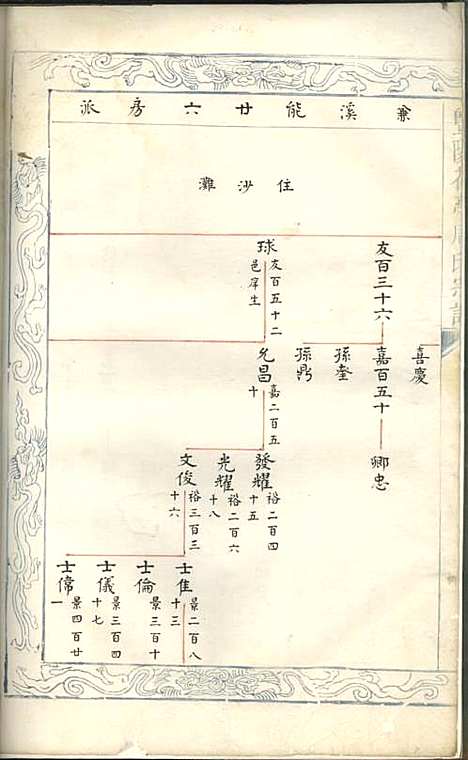 兼溪能廿六房派
住沙灘
友百三十六
球
友百五十二
邑庠生
喜慶
嘉百五十
孫奎
孫鼎
允昌
嘉二百五
十
卿忠
發耀
裕二百四
十五
光耀
裕二百六
十八
文俊
裕三百三
十六
士隹
景二百八
十三
士倫
景三百十
士儀
景三百四
十七
士俿
景四百廿
一